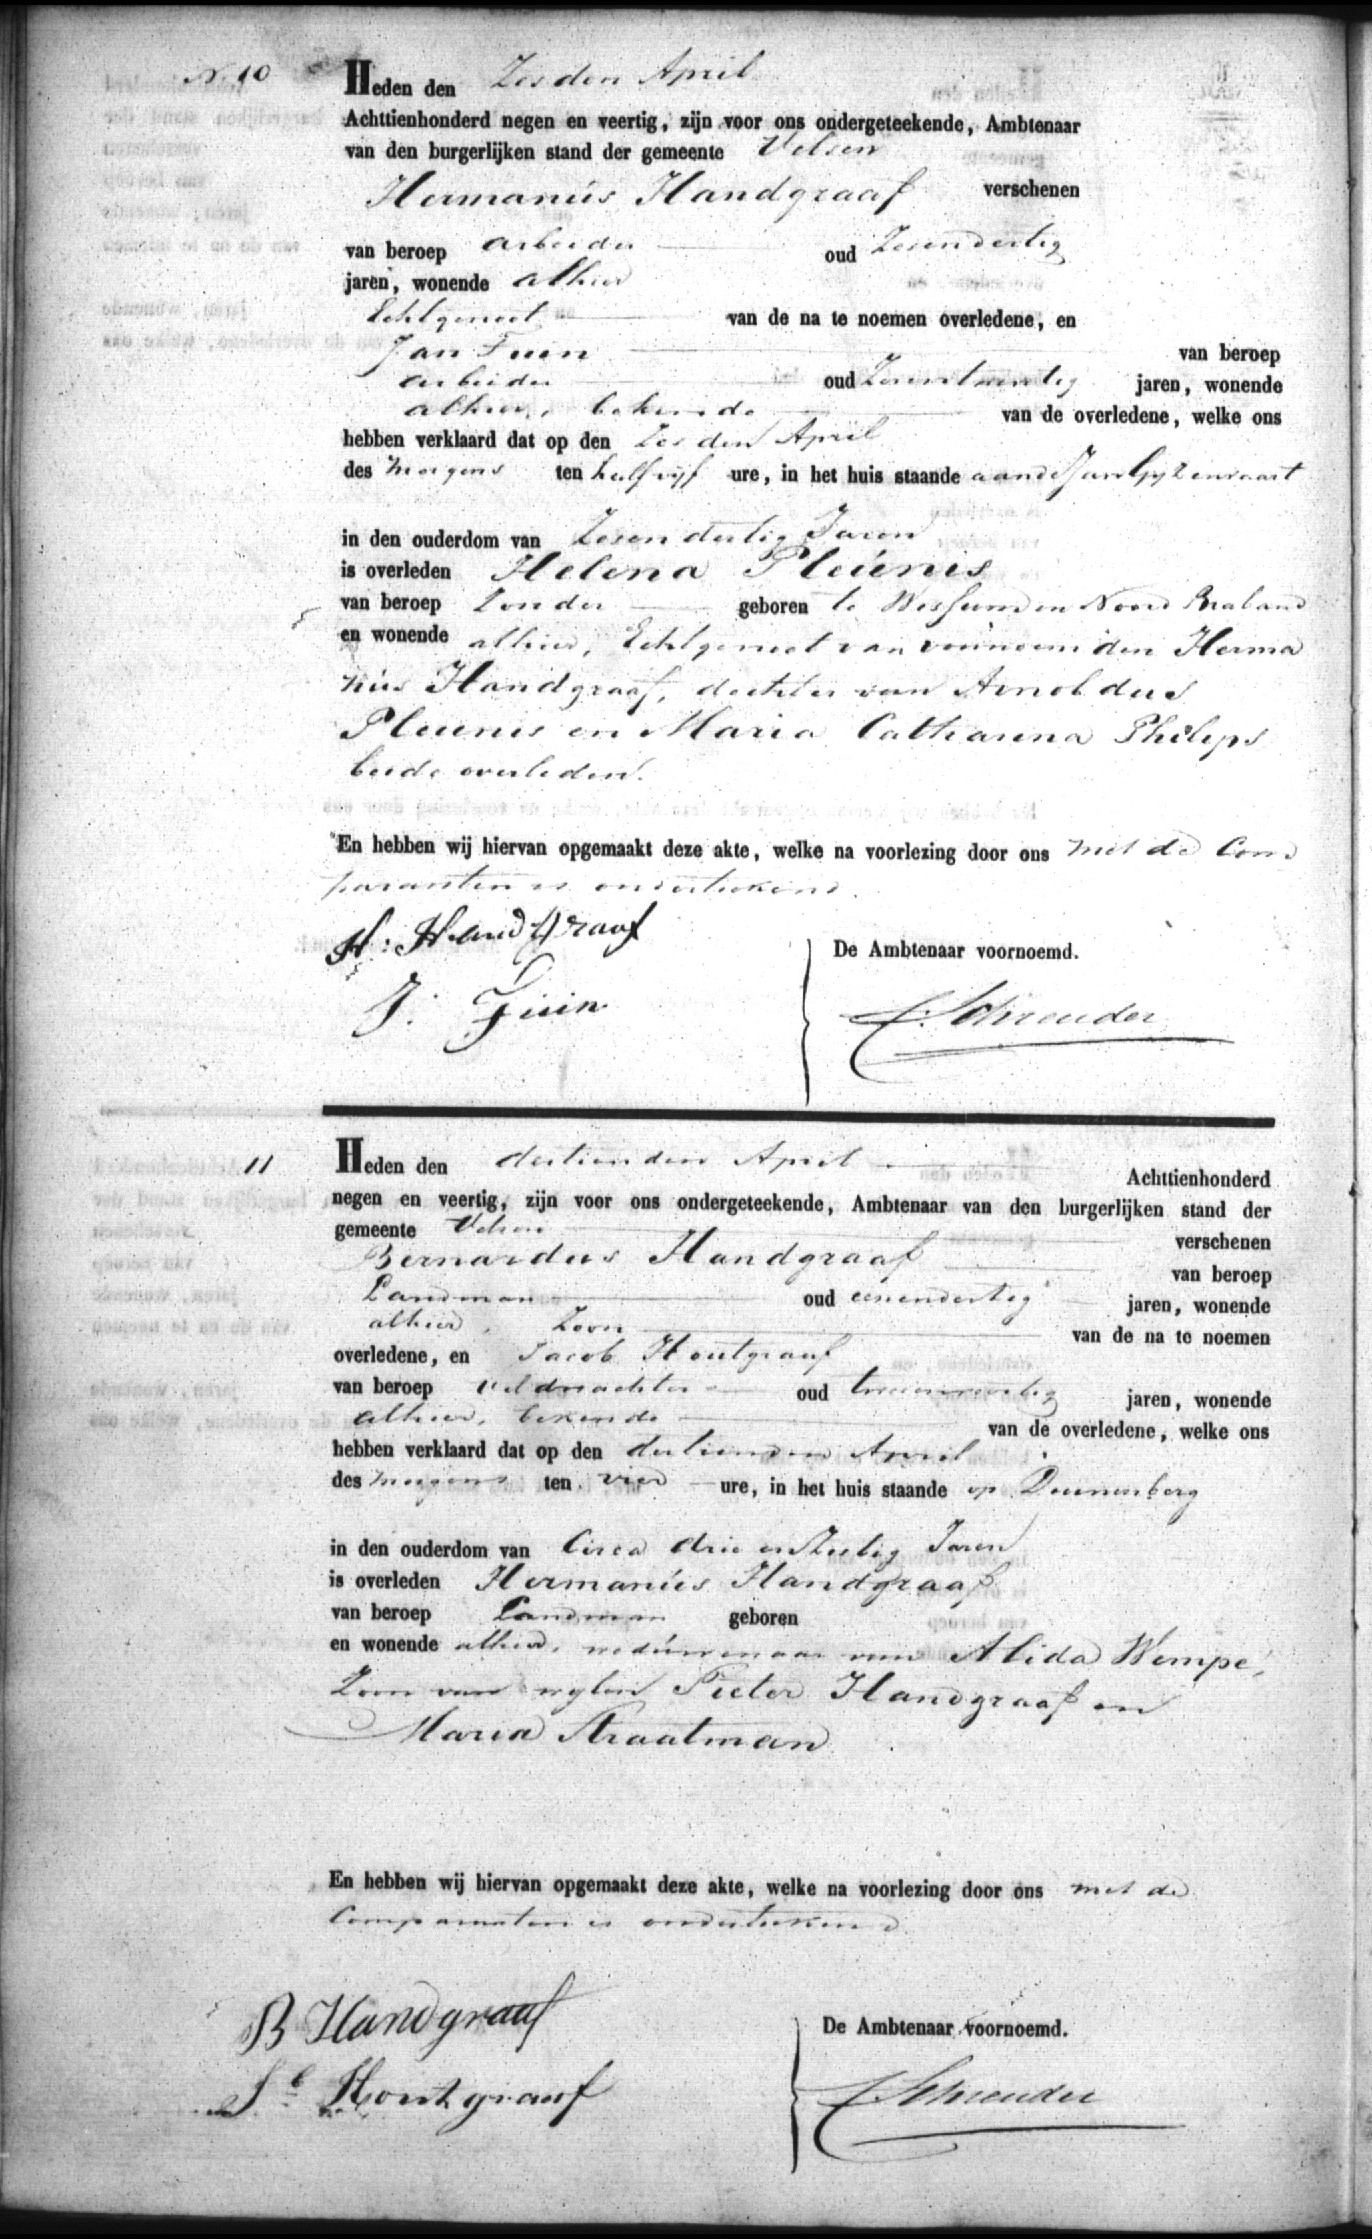 N. 10
Heden den Zesden April
Achttienhonderd negen en veertig, zijn voor ons ondergeteekende, Ambtenaar
van den burgerlijken stand der gemeente Velsen
Hermanús Handgraaf verschenen
van beroep arbeider oud Zesendertig
jaren, wonende alhier
Echtgenoot van de na te noemen overledene, en
Jan van beroep
arbeider oud Zesentwintig jaren, wonende
alhier, bekende van de overledene, welke ons
hebben verklaard dat op den Zesden April
des Morgens ten half vijf ure, in het huis staande aan de Jan Gijzenvaart
in den ouderdom van Zesendertig Jaren
is overleden Helena Pleúnis
van beroep Zonder geboren te in Noord Braband
en wonende alhier, Echtgenoot van voornoemden Herma
nus Handgraaf, dochter van Arnoldus
Pleunis en Maria Catharina Philips
beide overleden.
En hebben wij hiervan opgemaakt deze akte, welke na voorlezing door ons met de Com
paranten is onderteekend.
H: Handgraaf
De Ambtenaar voornoemd.
J.
Schreuder
11
Heden den dertienden April Achttienhonderd
negen en veertig, zijn voor ons ondergeteekende, Ambtenaar van den burgerlijken stand der
gemeente Velsen verschenen
Bernardus Handgraaf van beroep
Landman oud eenendertig jaren, wonende
alhier, Zoon van de na te noemen
overledene, en Jacob Houtgraaf
van beroep veldwachter oud jaren, wonende
alhier, bekende van de overledene, welke ons
hebben verklaard dat op den dertienden April
des morgens ten vier ure, in het huis staande op Duunenberg
in den ouderdom van Circa drie en Zestig Jaren
is overleden Hermanús Handgraaf
van beroep Landman geboren
en wonende alhier, weduwenaar van Alida Wempe,
Zoon van wijlen Pieter Handgraaf en
Maria Straatman
En hebben wij hiervan opgemaakt deze akte, welke na voorlezing door ons met de
Comparanten is onderteekend
B Handgraaf
De Ambtenaar voornoemd.
Jb Houtgraaf
Schreuder